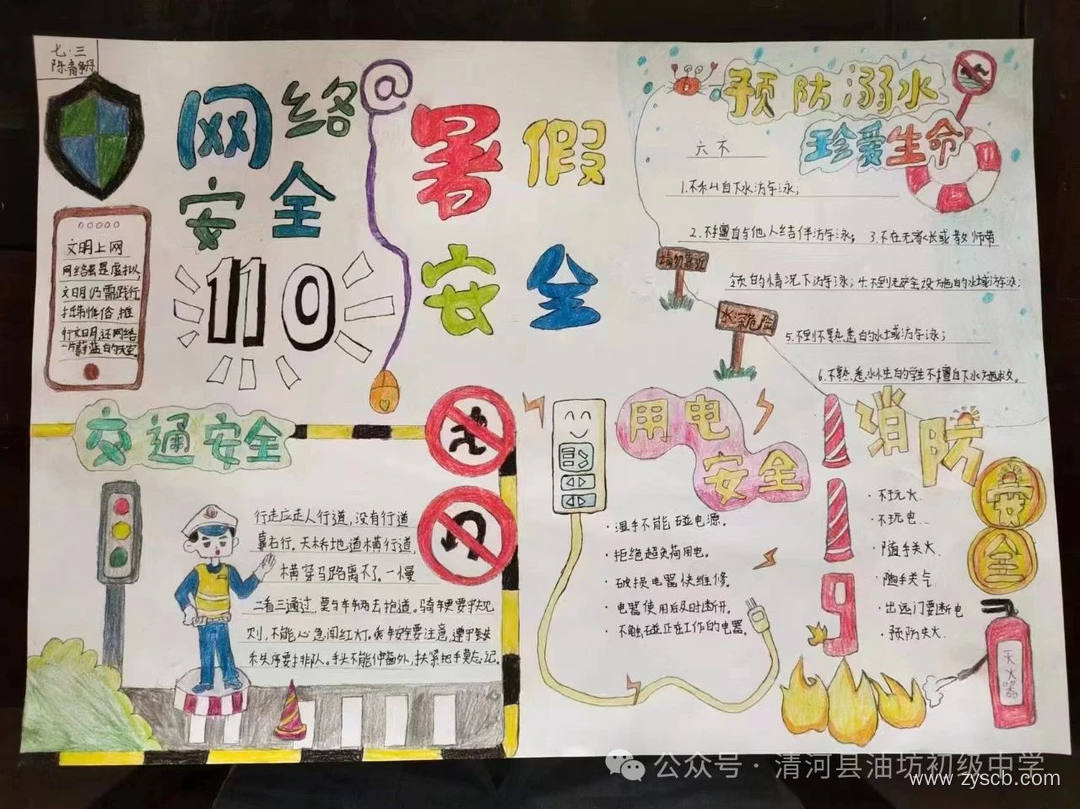 七.三
网络
安全
110
@
暑假
安全
文明上网
网络虽是虚拟,
文明仍需践行
行文明,还网络
一片蔚蓝的天空
预防溺水
珍爱生命
六不
1.不私自下水游泳;
2.不擅自与他人结伴游泳; 3.不在无家长或教师带
领的情况下游泳;4.不到无安全设施的水域游泳;
5.不到不熟悉的水域游泳;
6.不熟悉水性的学生不擅自下水施救。
水深危险
交通安全
行走应走人行道,没有行道
靠右行。天桥地道横行道,
横穿马路离不了。一慢
二看三通过,莫与车辆去抢道。骑车更要守规
则,不能心急闯红灯。乘车安全要注意,遵守乘车
秩序要排队。手头不能伸窗外,扶紧把手莫忘记。
用电
安全
·湿手不能碰电源。
·拒绝超负荷用电。
·破损电器快维修。
·电器使用后及时断开。
·不触碰正在工作的电器。
119
消防
安全
·不玩火
·不玩电
·随手关火
·随手关气
·出远门要断电
·预防失火
灭火器
公众号·清河县油坊初级中学
www.zyscb.com